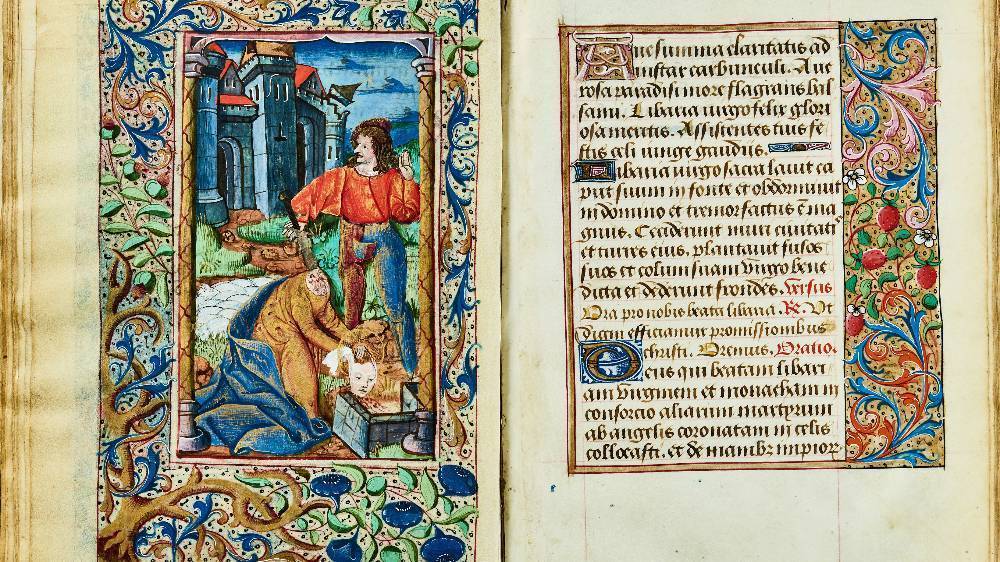 Aue summa claritatis ad
instar carbunculi. Aue
rosa paradisi more flagrans bal
sami. Libaria uirgo felix glori
osa meritis. Assistentes tuis fe
stis celi iunge gaudiis.
Libaria uirgo sacra lauit ca
put suum in fonte et obdormiuit
in domino et tremor factus ē ma
gnus. Ceciderunt muri ciuitatis
et turres eius. plantauit fusos
suos et colum suam uirgo bene
dicta et dederunt frondes. Versus
Ora pro nobis beata libaria. R. Vt
digni efficiamur promissionibus
christi. Oremus. Oratio.
Deus qui beatam libari
am uirginem et monacham in
consorcio aliarum martyrum
ab angelis coronatam in celis
collocasti. et de manibꝫ impior